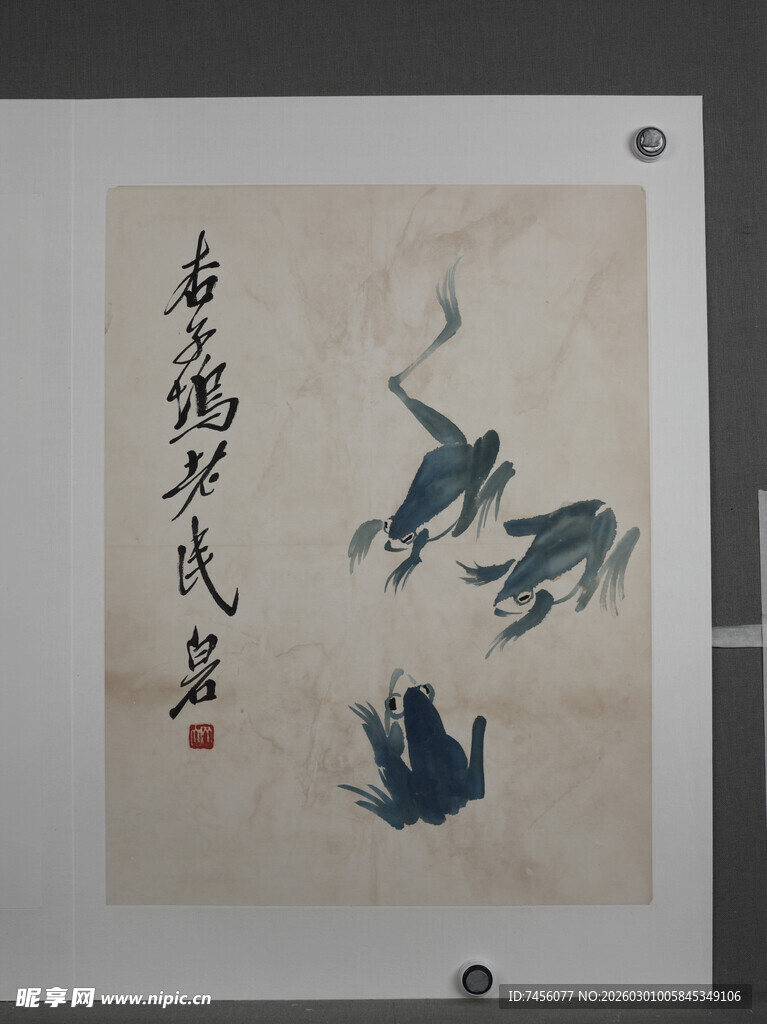 杏子塢老民白石
昵享网 www.nipic.cn
ID:7456077 NO:20260301005845349106